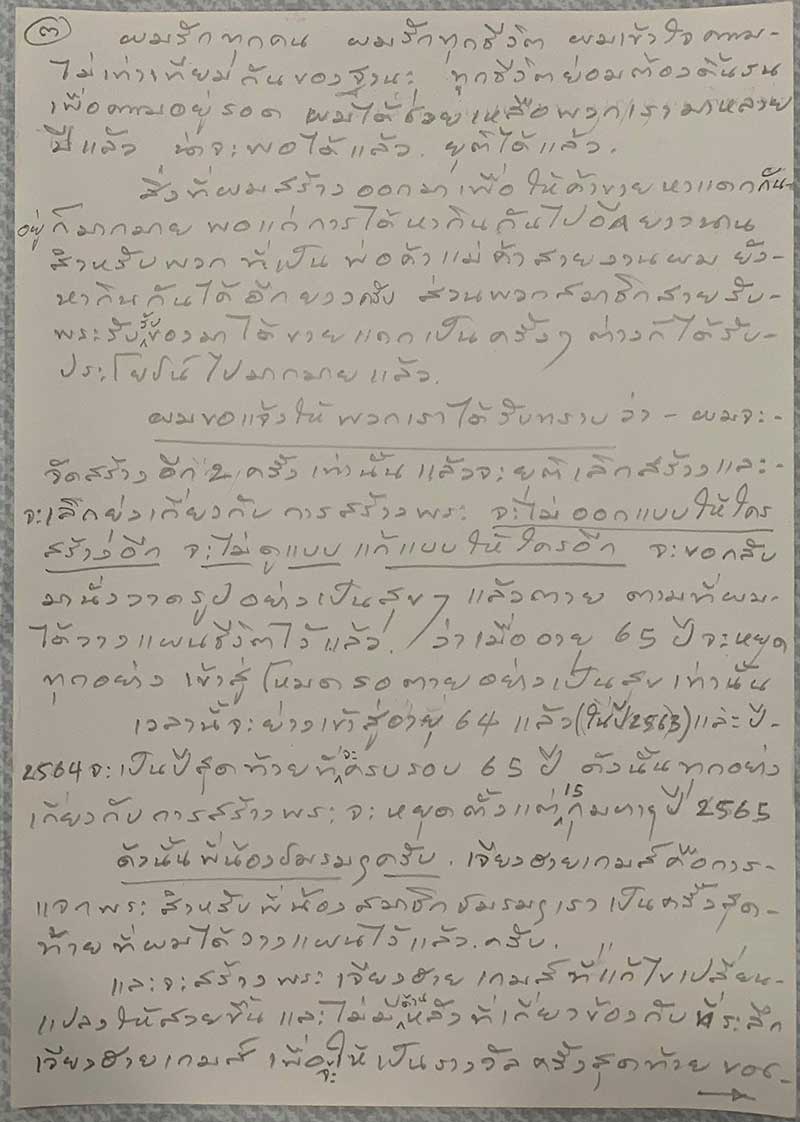 ๓
ผมรักทุกคน ผมรักทุกชีวิต ผมเข้าใจความ-
ไม่เท่าเทียมกันของฐานะ ทุกชีวิตย่อมต้องดิ้นรน
เพื่อความอยู่รอด ผมได้ช่วยเหลือพวกเรามาหลาย
ปีแล้ว น่าจะพอได้แล้ว. ยุติได้แล้ว.
สิ่งที่ผมสร้างออกมาเพื่อให้ค้าขายหาแดกกัน-
อยู่ก็มากมาย พอแก่การได้หากินกันไปอีกยาวนาน
สำหรับพวกที่เป็นพ่อค้าแม่ค้าสายงานผม ยัง-
หากินกันได้อีกยาวครับ ส่วนพวกสมาชิกสายรับ-
พระรับรับของมาได้ขายแดกเป็นครั้งๆ ต่างก็ได้รับ-
ประโยชน์ไปมากมายแล้ว.
ผมขอแจ้งให้พวกเราได้รับทราบว่า - ผมจะ-
จัดสร้างอีก 2 ครั้งเท่านั้น แล้วจะยุติเลิกสร้างและ-
จะเลิกยุ่งเกี่ยวกับการสร้างพระ จะไม่ออกแบบให้ใคร
สร้างอีก จะไม่ดูแบบ แก้แบบให้ใครอีก จะขอกลับ
มานั่งวาดรูปอย่างเป็นสุขๆ แล้วตาย ตามที่ผม-
ได้วางแผนชีวิตไว้แล้ว. ว่าเมื่ออายุ 65 ปีจะหยุด
ทุกอย่าง เข้าสู่โหมดรอตายอย่างเป็นสุขเท่านั้น
เวลานี้จะย่างเข้าสู่อายุ 64 แล้ว(ในปี2563)และปี-
2564จะเป็นปีสุดท้ายที่จะครบรอบ 65 ปี ดังนั้นทุกอย่าง
เกี่ยวกับการสร้างพระจะหยุดตั้งแต่ 15 กุมภาฯปี 2565
ดังนั้นพี่น้องชมรมๆครับ. เจียงฮายเกมส์คือการ-
แจกพระสำหรับพี่น้องสมาชิกชมรมๆเราเป็นครั้งสุด-
ท้ายที่ผมได้วางแผนไว้แล้ว.ครับ.
และจะสร้างพระ เจียงฮายเกมส์ ที่แก้ไขเปลี่ยน-
แปลงให้สวยขึ้น และไม่มีด้านหลังที่เกี่ยวข้องกับที่ระลึก
เจียงฮายเกมส์ เพื่อจะให้เป็นรางวัลครั้งสุดท้ายของ-